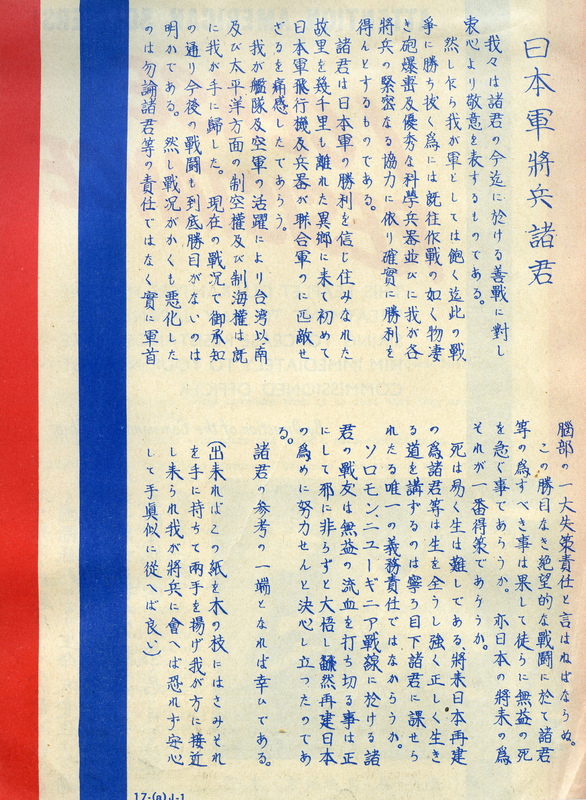 日本軍將兵諸君
我々は諸君の今迄に於ける善戰に對し
衷心より敬意を表するものである。
然し乍ら我が軍としては飽く迄此の戰
爭に勝ち抜く爲には既往作戰の如く物凄
き砲爆擊及優秀な科學兵器並びに我が各
將兵の緊密なる協力に依り確實に勝利を
得んとするものである。
諸君は日本軍の勝利を信じ住みなれた
故里を幾千里も離れた異郷に来て初めて
日本軍飛行機及兵器が聯合軍のに匹敵せ
ざるを痛感したであらう。
我が艦隊及空軍の活躍により台湾以南
及び太平洋方面の制空權及び制海權は既
に我が手に歸した。現在の戰況で御承知
の通り今後の戰鬪も到底勝目がないのは
明かである。然し戰況がかくも悪化した
のは勿論諸君等の責任ではなく實に軍首
腦部の一大失策責任と言はねばならぬ。
この勝目なき絶望的な戰鬪に於て諸君
等の爲すべき事は果して徒らに無益の死
を急ぐ事であらうか。亦日本の將来の爲
それが一番得策であらうか。
死は易く生は難しである將来日本再建
の爲諸君等は生を全うし強く正しく生き
る道を講ずるのは寧ろ目下諸君に課せら
れたる唯一の義務責任ではなからうか。
ソロモン、ニューギニア戰線に於ける諸
君の戰友は無益の流血を打ち切る事は正
にして邪に非らずと大悟し飜然再建日本
の爲めに努力せんと決心し立つたのであ
る。
諸君の参考の一端となれば幸ひである。
(出来ればこの紙を木の枝にはさみそれ
を手に持ちて兩手を揚げ我が方に接近
し来られ我が將兵に會へば恐れず安心
して手眞似に從へば良い)
17-(a)J-1